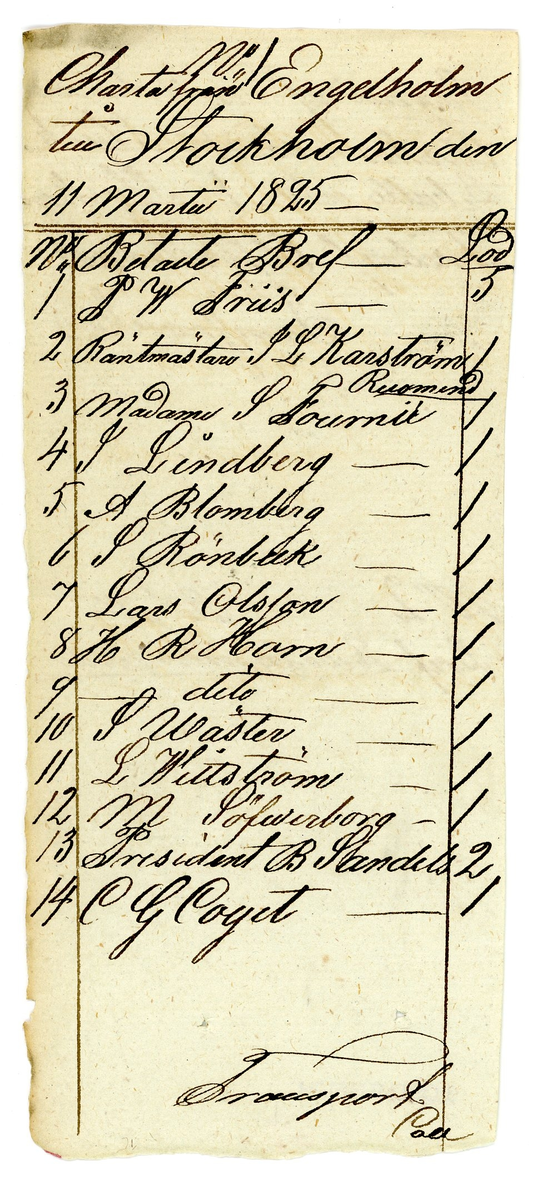 No 1
Charta från Engelholm
till Stockholm den
11 Martii 1825 —
No Betalte Bref — Lod
1 P W Friis — 5
2 Räntmästare J L Karström 1
3 Madame S Fournie 1
4 J Lindberg — 1
5 A Blomberg — 1
6 J Rönbæk — 1
7 Lars Olsson — 1
8 H R Horn — 1
9 — dito — 1
10 J Wäster — 1
11 L Wittström — 1
12 M Söfwerborg — 1
13 President B Sandels 2
14 C G Coyet — 1
Transport